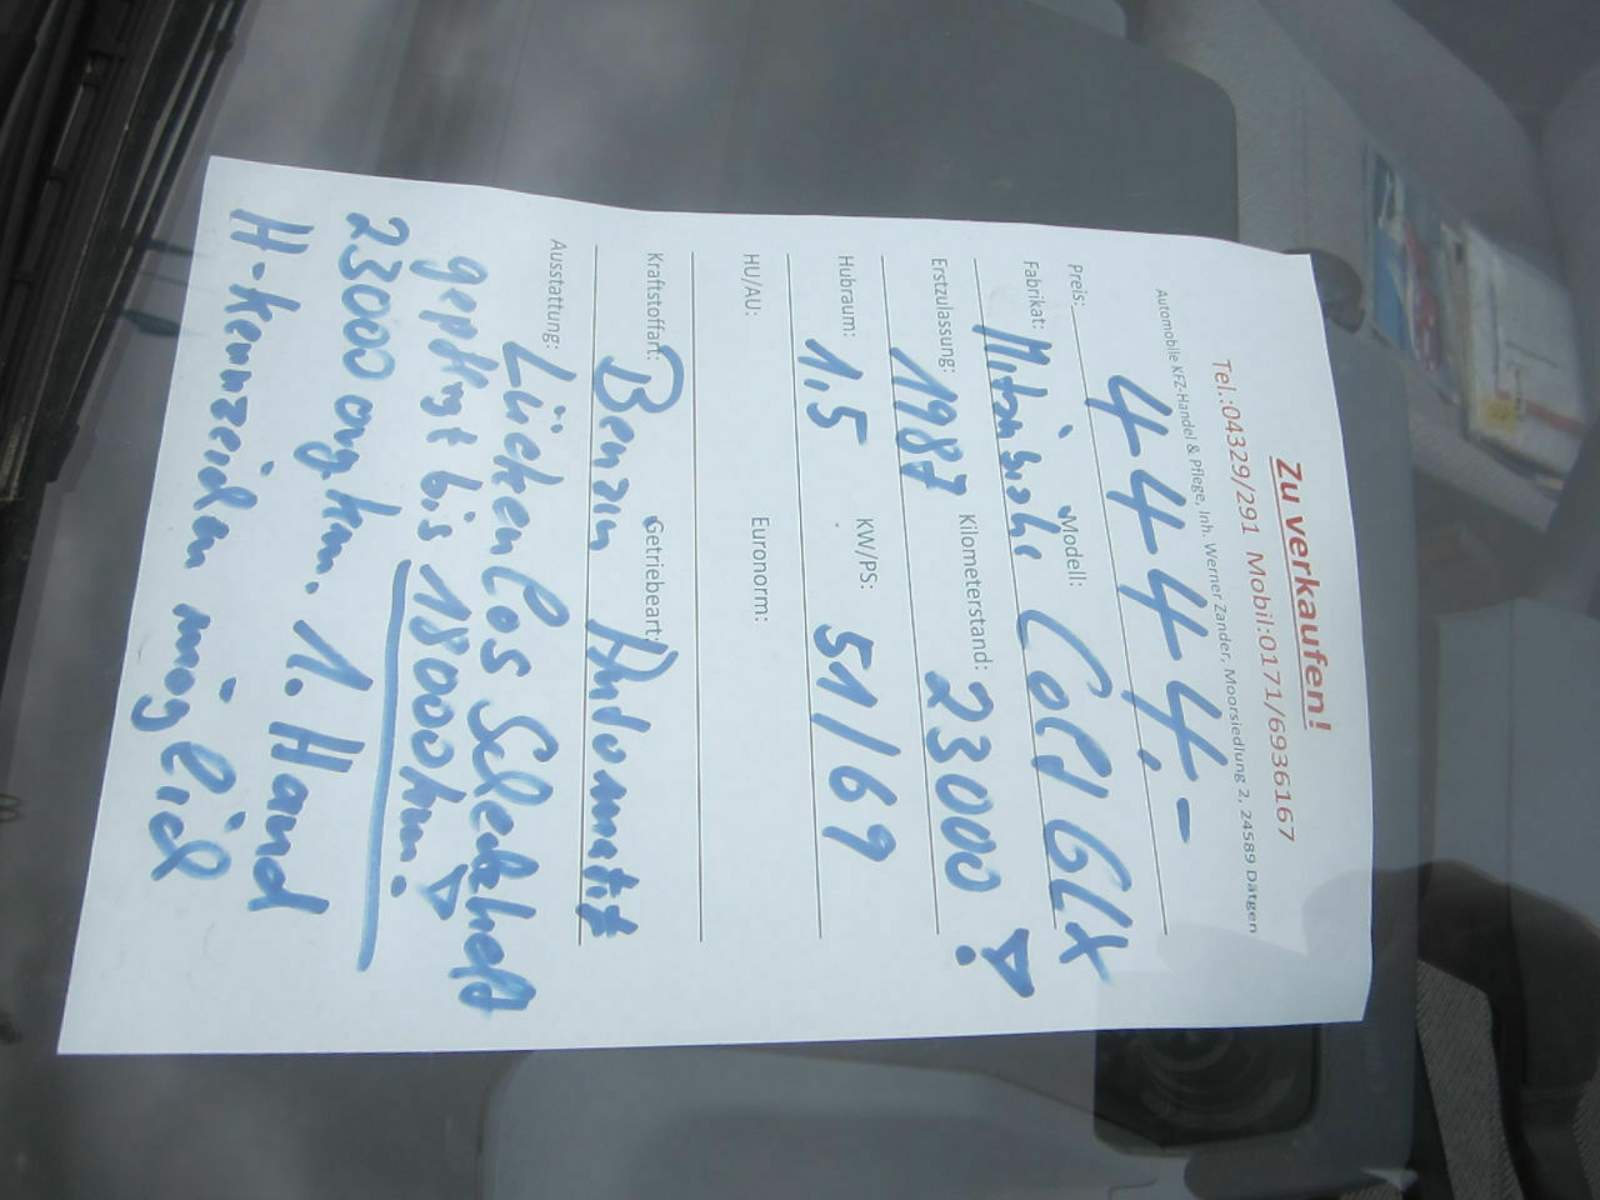 Zu verkaufen!
Tel.:04329/291 Mobil:0171/6936167
Automobile KFZ-Handel & Pflege, Inh. Werner Zander, Moorsiedlung 2, 24589 Dätgen
Preis: 4444,-
Fabrikat: Mitsubishi Modell: Colt GLX
Erstzulassung: 1987 Kilometerstand: 23000!
Hubraum: 1,5 KW/PS: 51/69
HU/AU: Euronorm:
Kraftstoffart: Benzin Getriebeart: Automatik
Ausstattung: Lückenlos Scheckheft
gepflegt bis 18000km!
23000 orig km. 1. Hand
H-Kennzeichen möglich